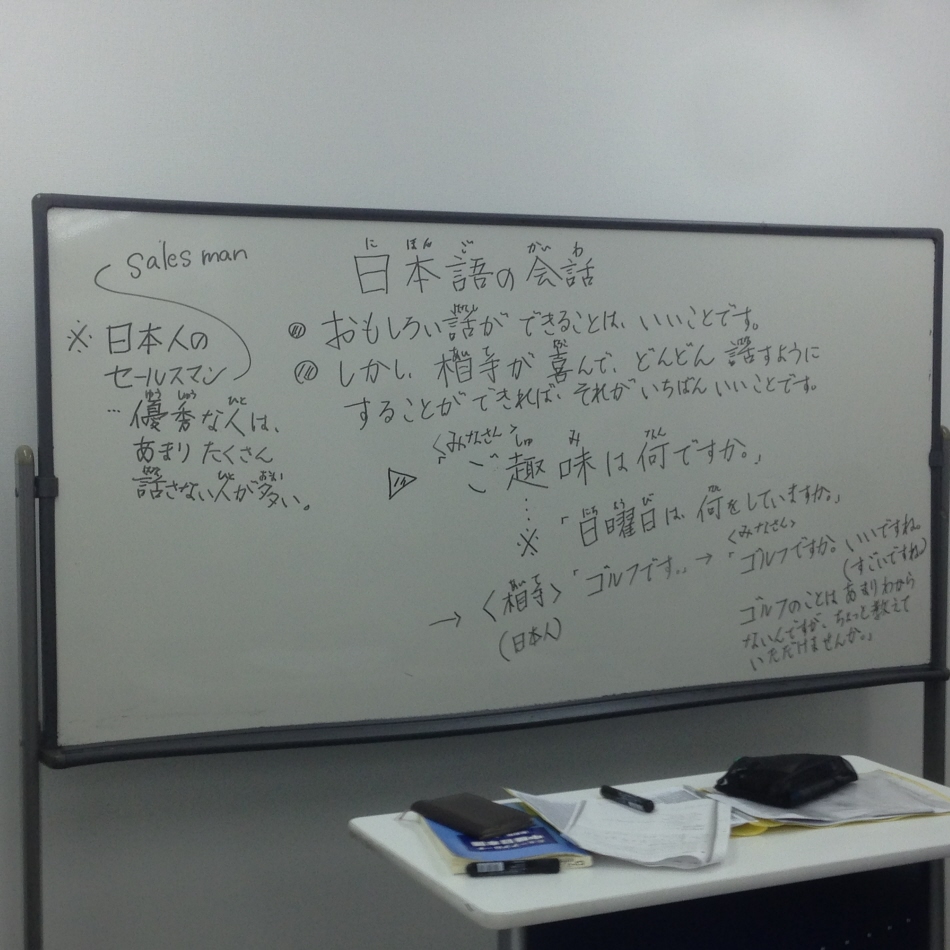 sales man
※ 日本人の
セールスマン
… 優秀な人は、
あまり たくさん
話さない人が多い。
日本語の会話
おもしろい話が できることは、いいことです。
しかし、相手が 喜んで、どんどん 話すように
することが できれば、それが いちばん いいことです。
〈みなさん〉
「ご趣味は何ですか。」
※ 「日曜日は、何をしていますか。」
→ 〈相手〉「ゴルフです。」→ 「ゴルフですか。いいですね。
(日本人)
〈みなさん〉
(すごいですね)
ゴルフのことは あまりわから
ないんですが、ちょっと教えて
いただけませんか。」